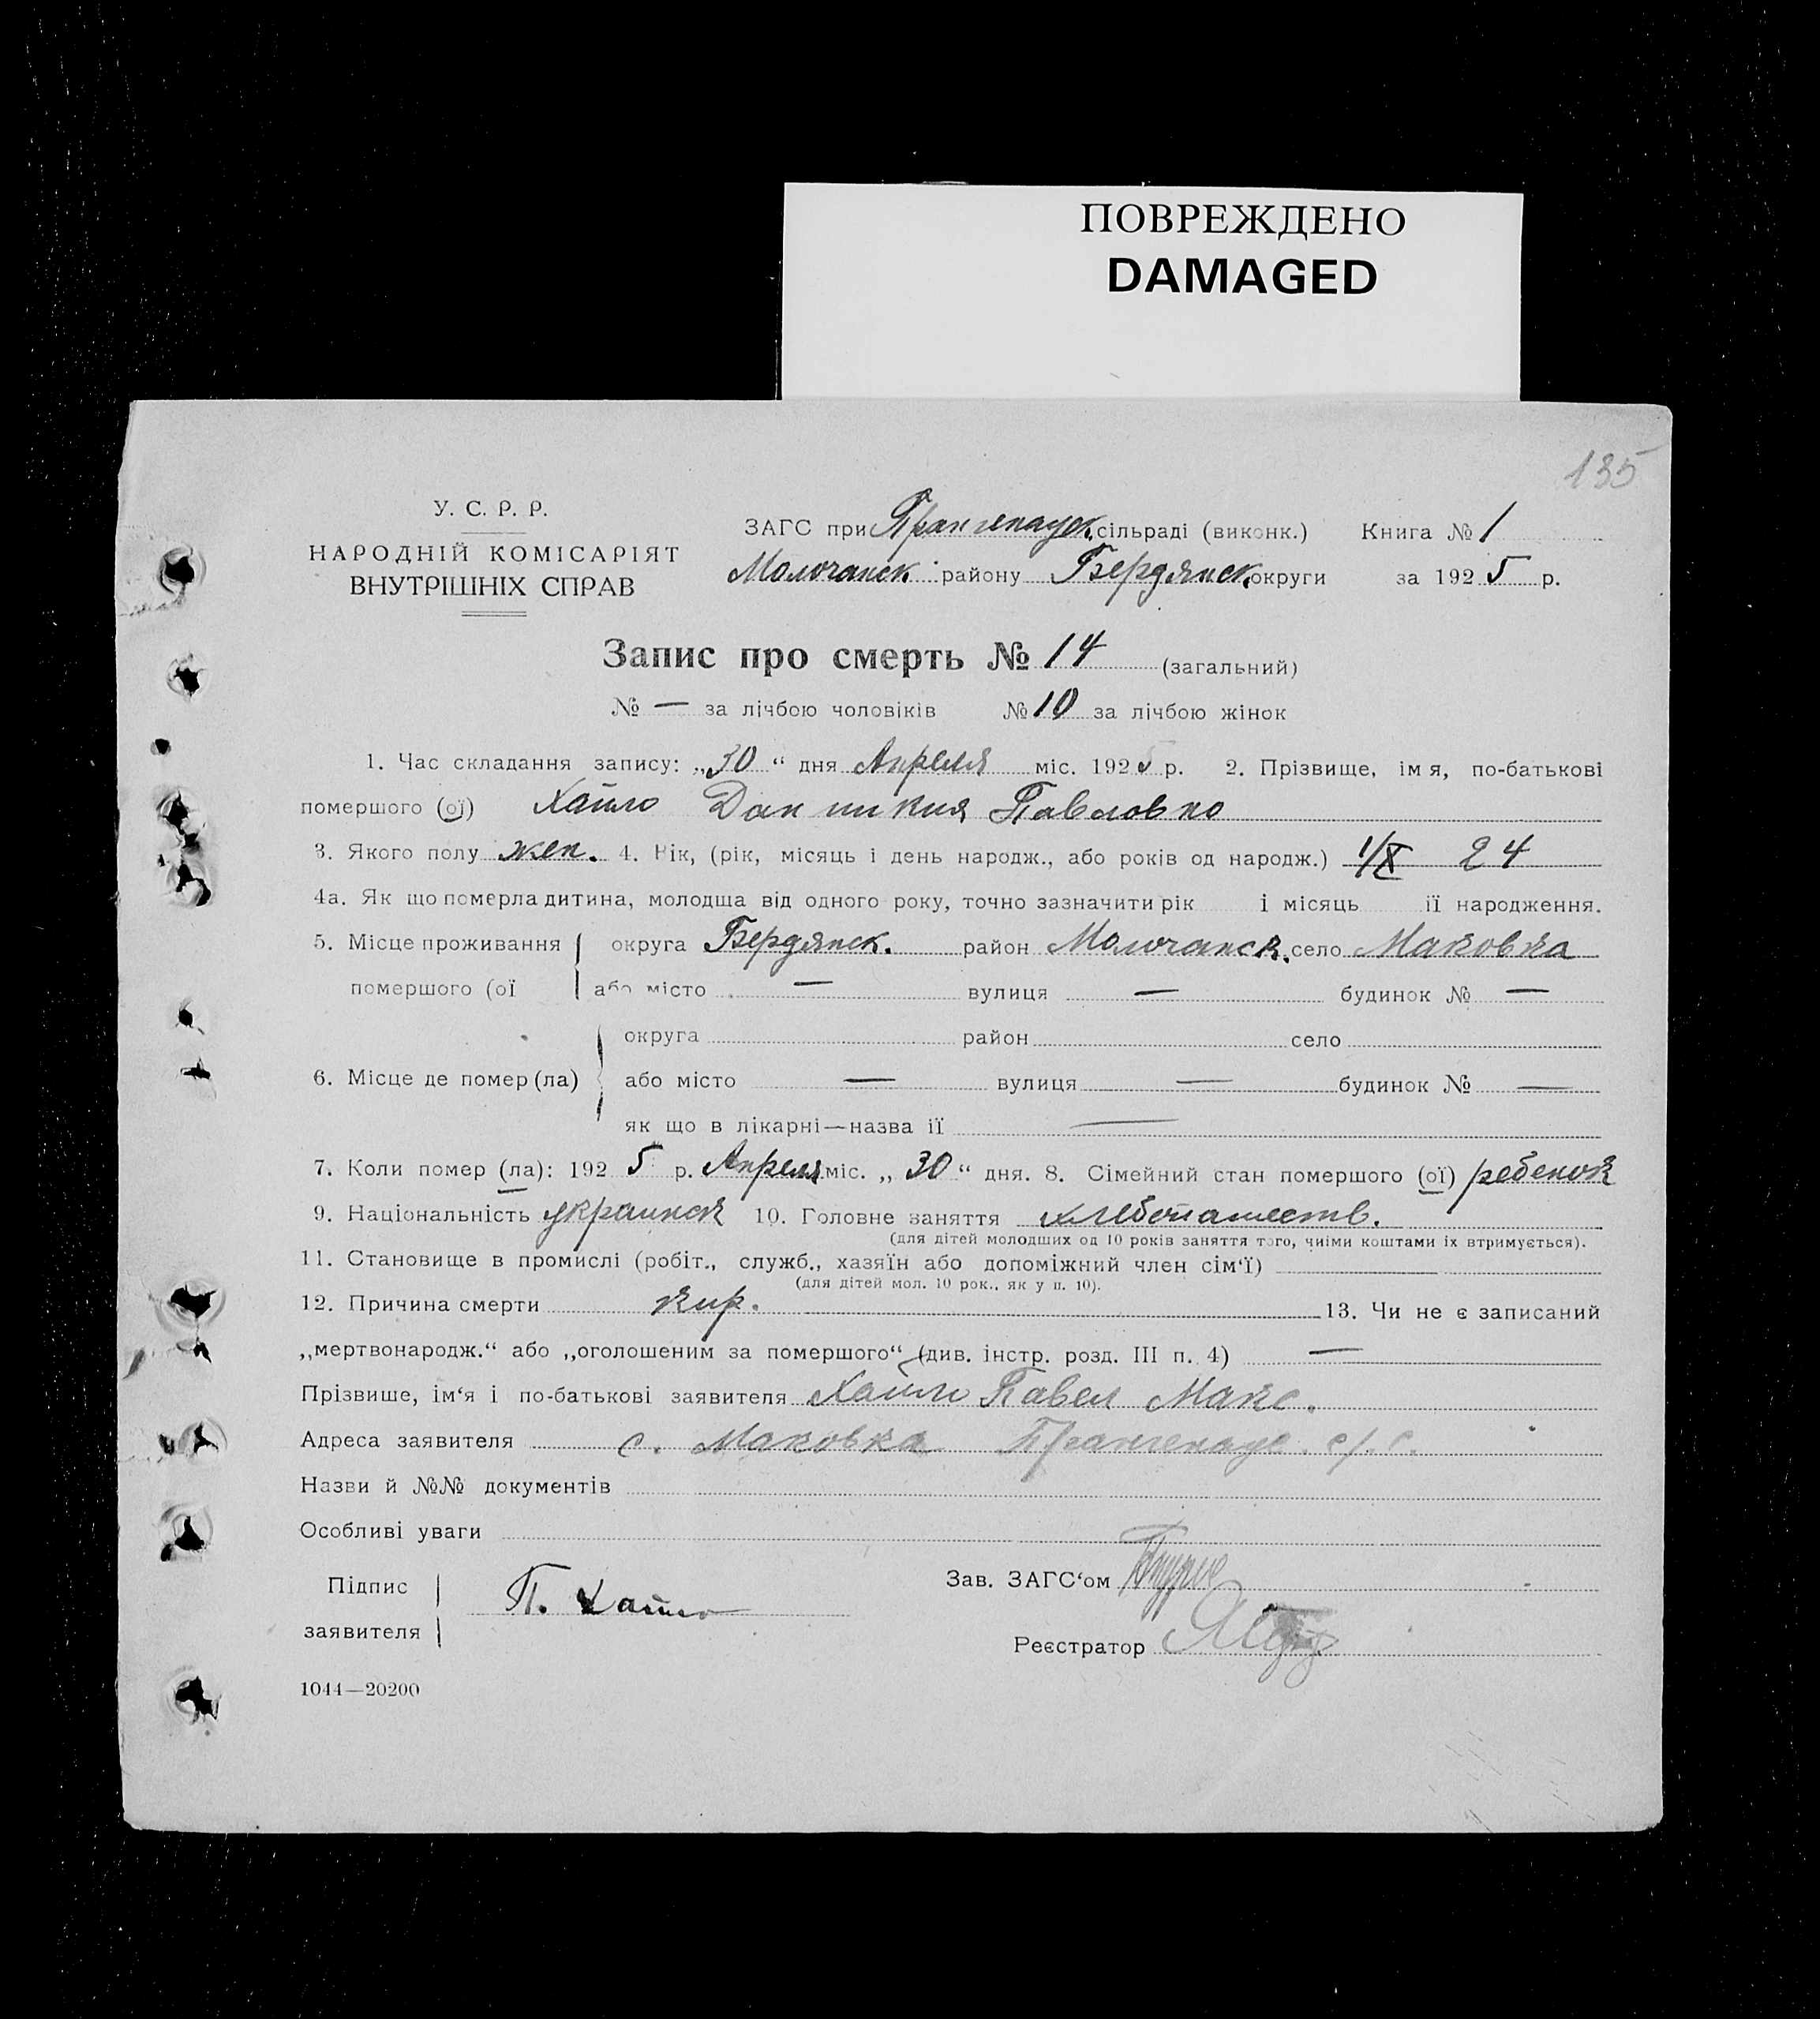 ПОВРЕЖДЕНО
DAMAGED
135
У. С. Р. Р.
НАРОДНІЙ КОМІСАРІЯТ
ВНУТРІШНІХ СПРАВ
ЗАГС при Прангенауск. сільраді (виконк.) Книга № 1
Молочанск. району Бердянск. округи за 1925 р.
Запис про смерть № 14 (загальний)
№ — за лічбою чоловіків № 10 за лічбою жінок
1. Час складання запису: „30“ дня Апреля міс. 1925 р. 2. Прізвище, імя, по-батькові
помершого (ої) Хайло Павловно
3. Якого полу жен. 4. Вік, (рік, місяць і день народж., або років од народж.) 1/X 24
4а. Як що померла дитина, молодша від одного року, точно зазначити рік і місяць її народження.
5. Місце проживання округа Бердянск. район Молочанск. село Маковка
помершого (ої або місто — вулиця — будинок № —
округа район село
6. Місце де помер (ла) або місто — вулиця — будинок № —
як що в лікарні—назва її —
7. Коли помер (ла): 1925 р. Апреля міс. „30“ дня. 8. Сімейний стан помершого (ої) ребенок
9. Національність украинск 10. Головне заняття хлебопашеств.
(для дітей молодших од 10 років заняття того, чиїми коштами їх втримується).
11. Становище в промислі (робіт., служб., хазяїн або допоміжний член сім‘ї) —
(для дітей мол. 10 рок., як у п. 10).
12. Причина смерти 13. Чи не є записаний
„мертвонародж.“ або „оголошеним за помершого“ (див. інстр. розд. III п. 4) —
Прізвище, ім‘я і по-батькові заявителя Хайло Павел Макс.
Адреса заявителя с. Маковка Прангенаус. с/с.
Назви й №№ документів
Особливі уваги
Підпис
заявителя П. Хайло
Зав. ЗАГС‘ом
Реєстратор
1044—20200